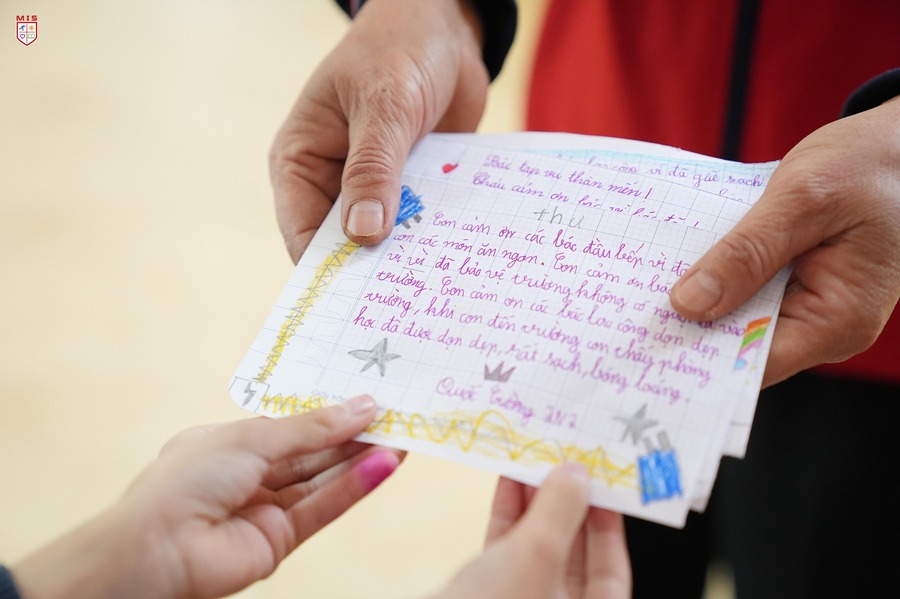 MIS
Bác tạp vụ thân mến!
Cháu cảm ơn
vì đã giữ sạch
thư
Con cảm ơn các bác đầu bếp vì đã
con các món ăn ngon. Con cảm ơn bác
vì đã bảo vệ trường không có người lạ vào
trường. Con cảm ơn các bác lao công dọn dẹp
trường, khi con đến trường con thấy phòng
học đã được dọn dẹp, rất sạch, bóng loáng.
Quốc Cường 2N2